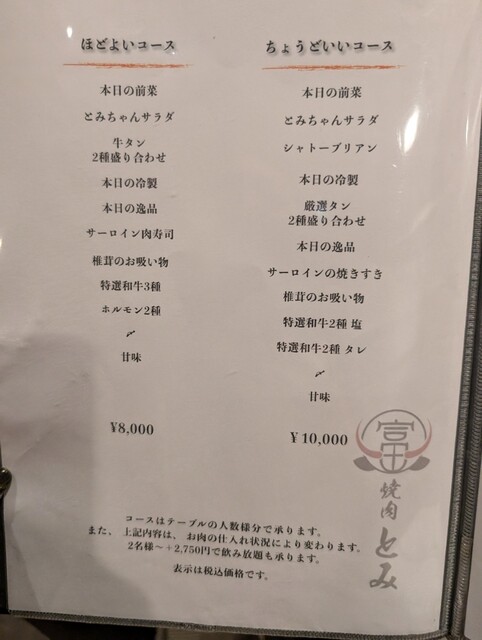 ほどよいコース
本日の前菜
とみちゃんサラダ
牛タン
2種盛り合わせ
本日の冷製
本日の逸品
サーロイン肉寿司
椎茸のお吸い物
特選和牛3種
ホルモン2種
〆
甘味
¥8,000
ちょうどいいコース
本日の前菜
とみちゃんサラダ
シャトーブリアン
本日の冷製
厳選タン
2種盛り合わせ
本日の逸品
サーロインの焼きすき
椎茸のお吸い物
特選和牛2種 塩
特選和牛2種 タレ
〆
甘味
¥10,000
コースはテーブルの人数様分で承ります。
また、上記内容は、お肉の仕入れ状況により変わります。
2名様〜+2,750円で飲み放題も承ります。
表示は税込価格です。
富
焼肉
とみ